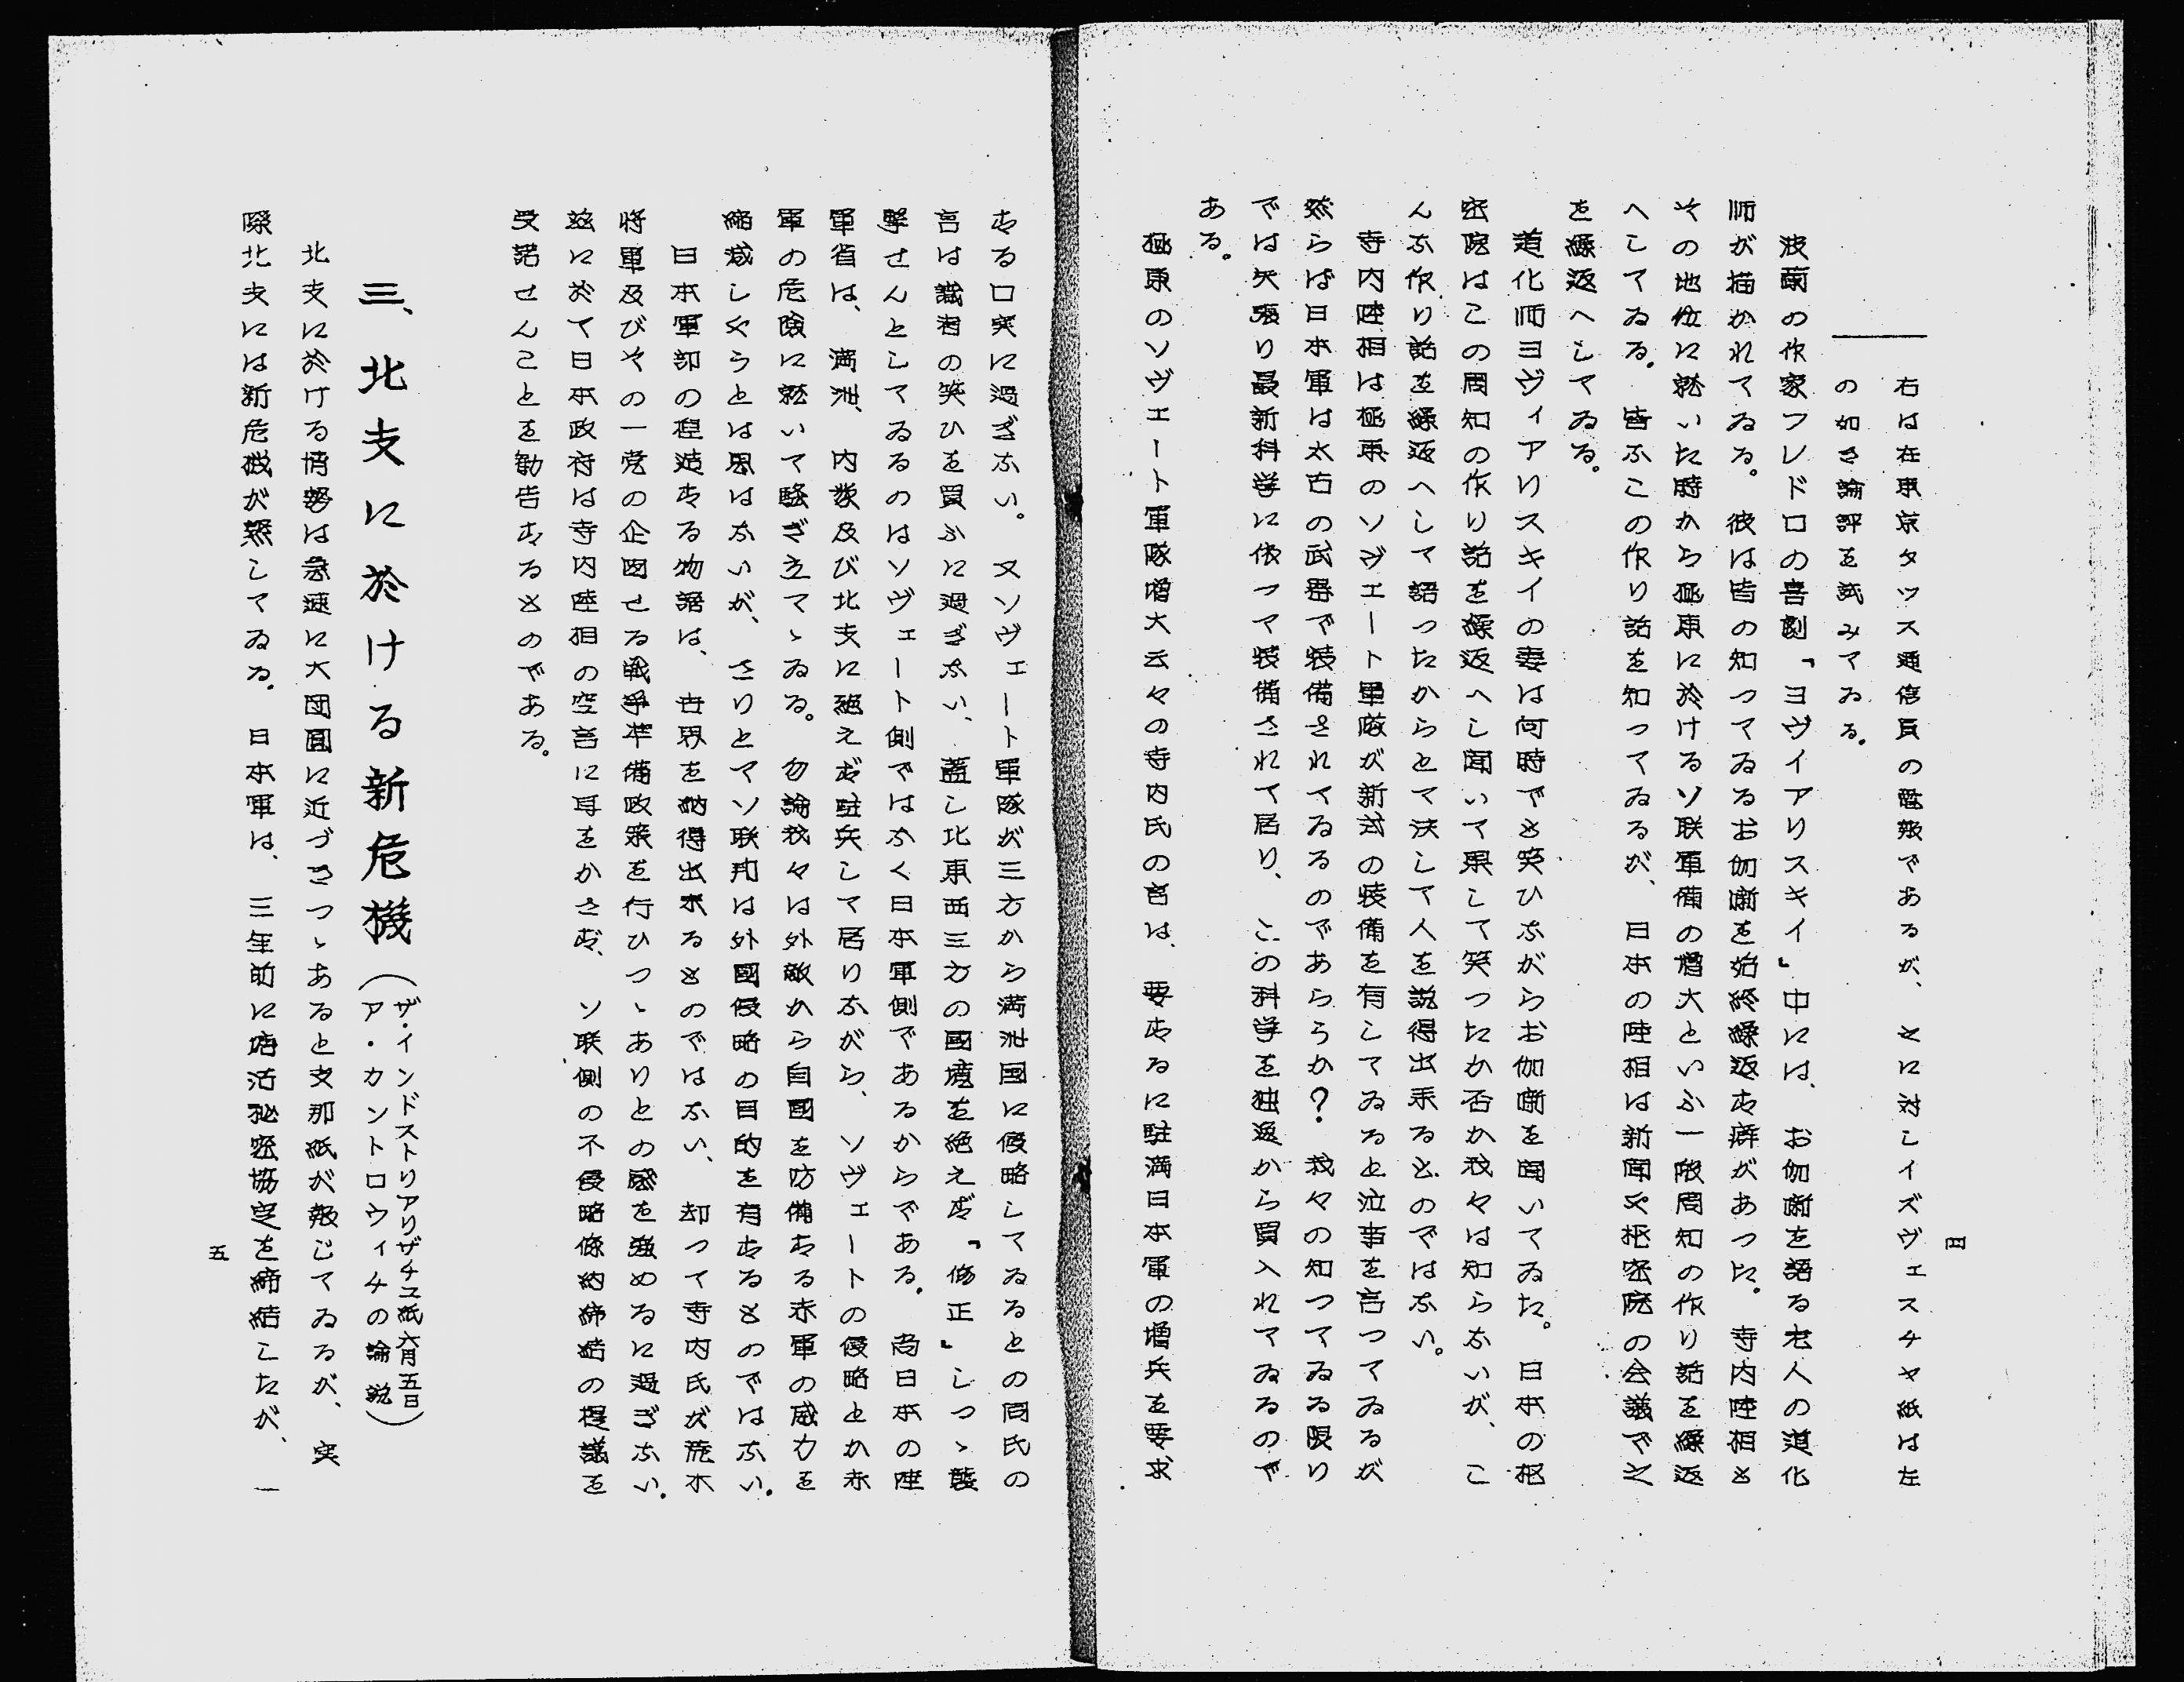 四
右は在東京タッス通信員の電報であるが、之に対しイズヴェスチヤ紙は左
の如き論評を試みてゐる。
波蘭の作家フレドロの喜劇『ヨヴイアリスキイ』中には、お伽噺を語る老人の道化
師が描かれてゐる。彼は皆の知つてゐるお伽噺を始終繰返す癖があつた。寺内陸相も
その地位に就いた時から極東に於けるソ联軍備の増大といふ一般周知の作り話を繰返
へしてゐる。皆なこの作り話を知つてゐるが、日本の陸相は新聞や枢密院の会議で之
を繰返へしてゐる。
道化師ヨヴィアリスキイの妻は何時でも笑ひながらお伽噺を聞いてゐた。日本の枢
密院はこの周知の作り話を繰返へし聞いて果して笑つたか否か我々は知らないが、こ
んな作り話を繰返へして語つたからとて決して人を説得出来るものではない。
寺内陸相は極東のソヴェート軍隊が新式の装備を有してゐると泣事を言つてゐるが
然らば日本軍は太古の武器で装備されてゐるのであらうか？我々の知つてゐる限り
では矢張り最新科学に依つて装備されて居り、この科学を独逸から買入れてゐるので
ある。
極東のソヴェート軍隊増大云々の寺内氏の言は、要するに駐満日本軍の増兵を要求
する口実に過ぎない。又ソヴェート軍隊が三方から満洲国に侵略してゐるとの同氏の
言は識者の笑ひを買ふに過ぎない、蓋し北東西三方の國境を絶えず『修正』しつゝ襲
撃せんとしてゐるのはソヴェート側ではなく日本軍側であるからである。尚日本の陸
軍省は、満洲、内蒙及び北支に絶えず駐兵して居りながら、ソヴェートの侵略とか赤
軍の危険に就いて騒ぎ立てゝゐる。勿論我々は外敵から自國を防備する赤軍の威力を
縮減しやうとは思はないが、さりとてソ联邦は外國侵略の目的を有するものではない。
日本軍部の捏造する物語は、世界を納得出来るものではない、却つて寺内氏が荒木
将軍及びその一党の企図せる戦爭準備政策を行ひつゝありとの感を強めるに過ぎない。
茲に於て日本政府は寺内陸相の空言に耳をかさず、ソ联側の不侵略條約締結の提議を
受諾せんことを勧告するものである。
三、北支に於ける新危機（ザ・インドストリアリザチユ紙六月五日
ア・カントロウィチの論説）
北支に於ける情勢は急速に大団圓に近づきつゝあると支那紙が報じてゐるが、実
際北支には新危機が熟してゐる。日本軍は、三年前に塘沽秘密協定を締結したが、一
五